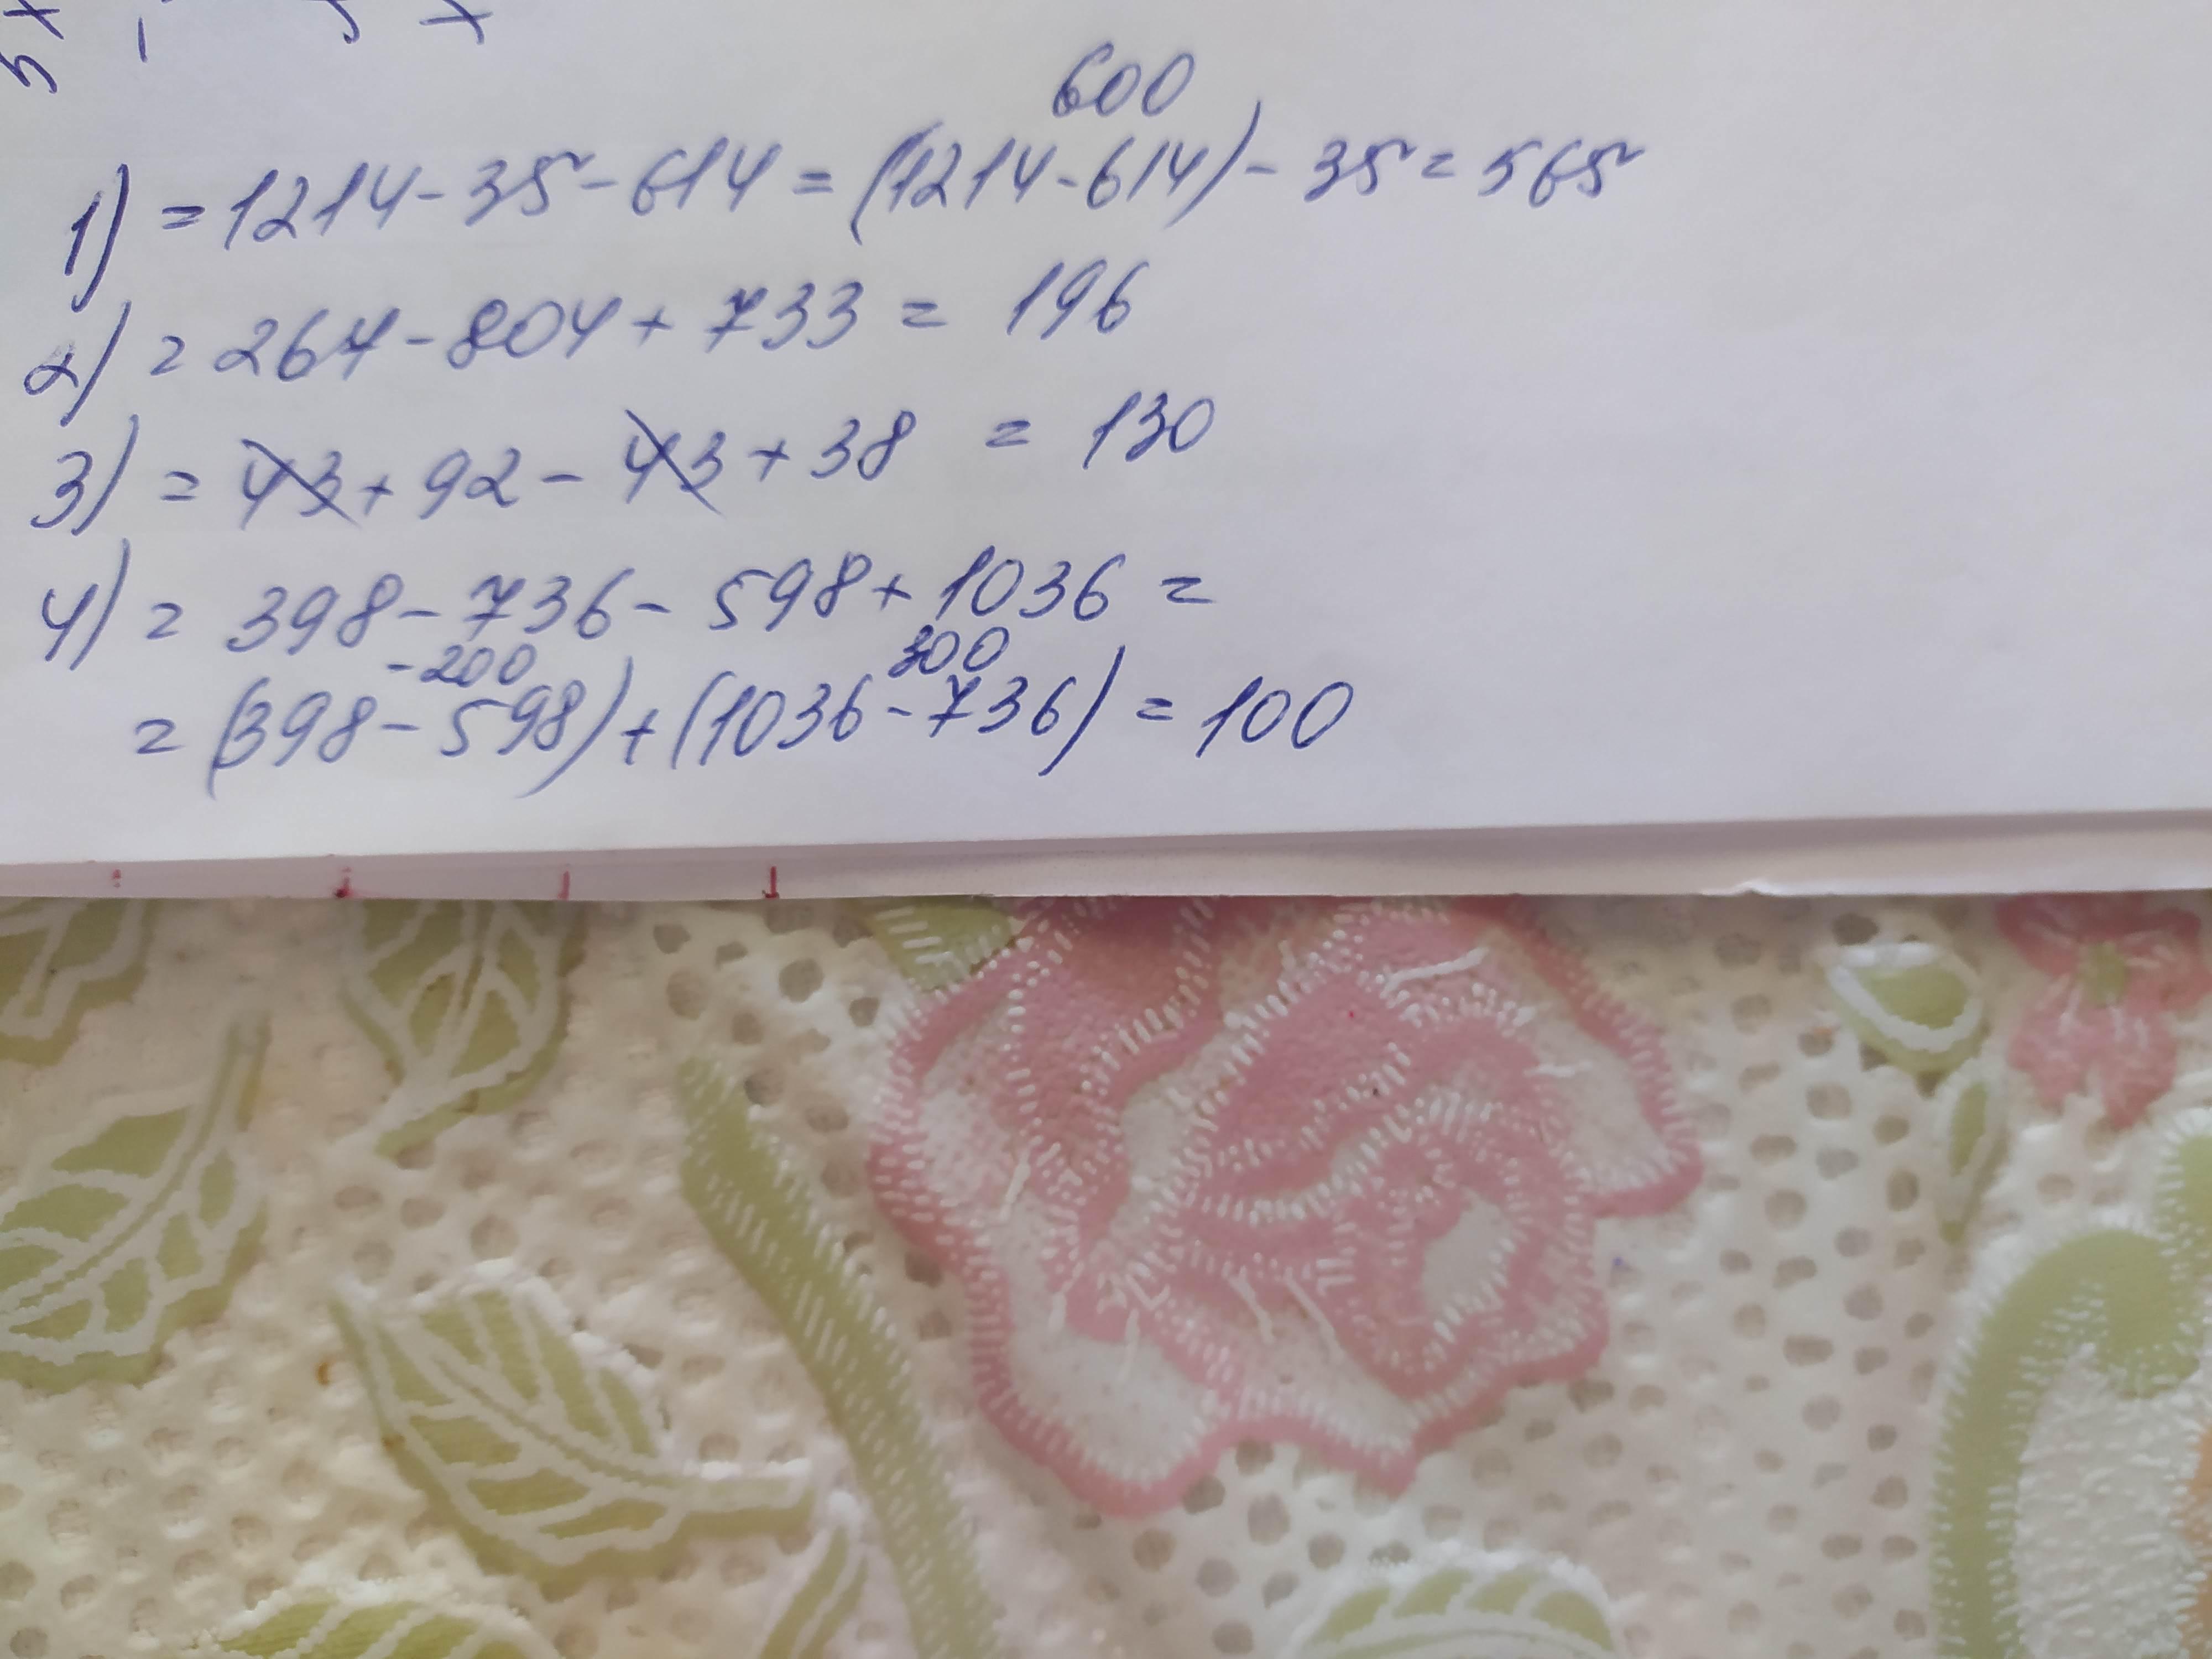 600
1) = 1214 - 35 - 614 = (1214 - 614) - 35 = 565
2) = 264 - 804 + 733 = 196
3) = 43 + 92 - 43 + 38 = 130
4) = 398 - 736 - 598 + 1036 =
-200 300
= (398 - 598) + (1036 - 736) = 100